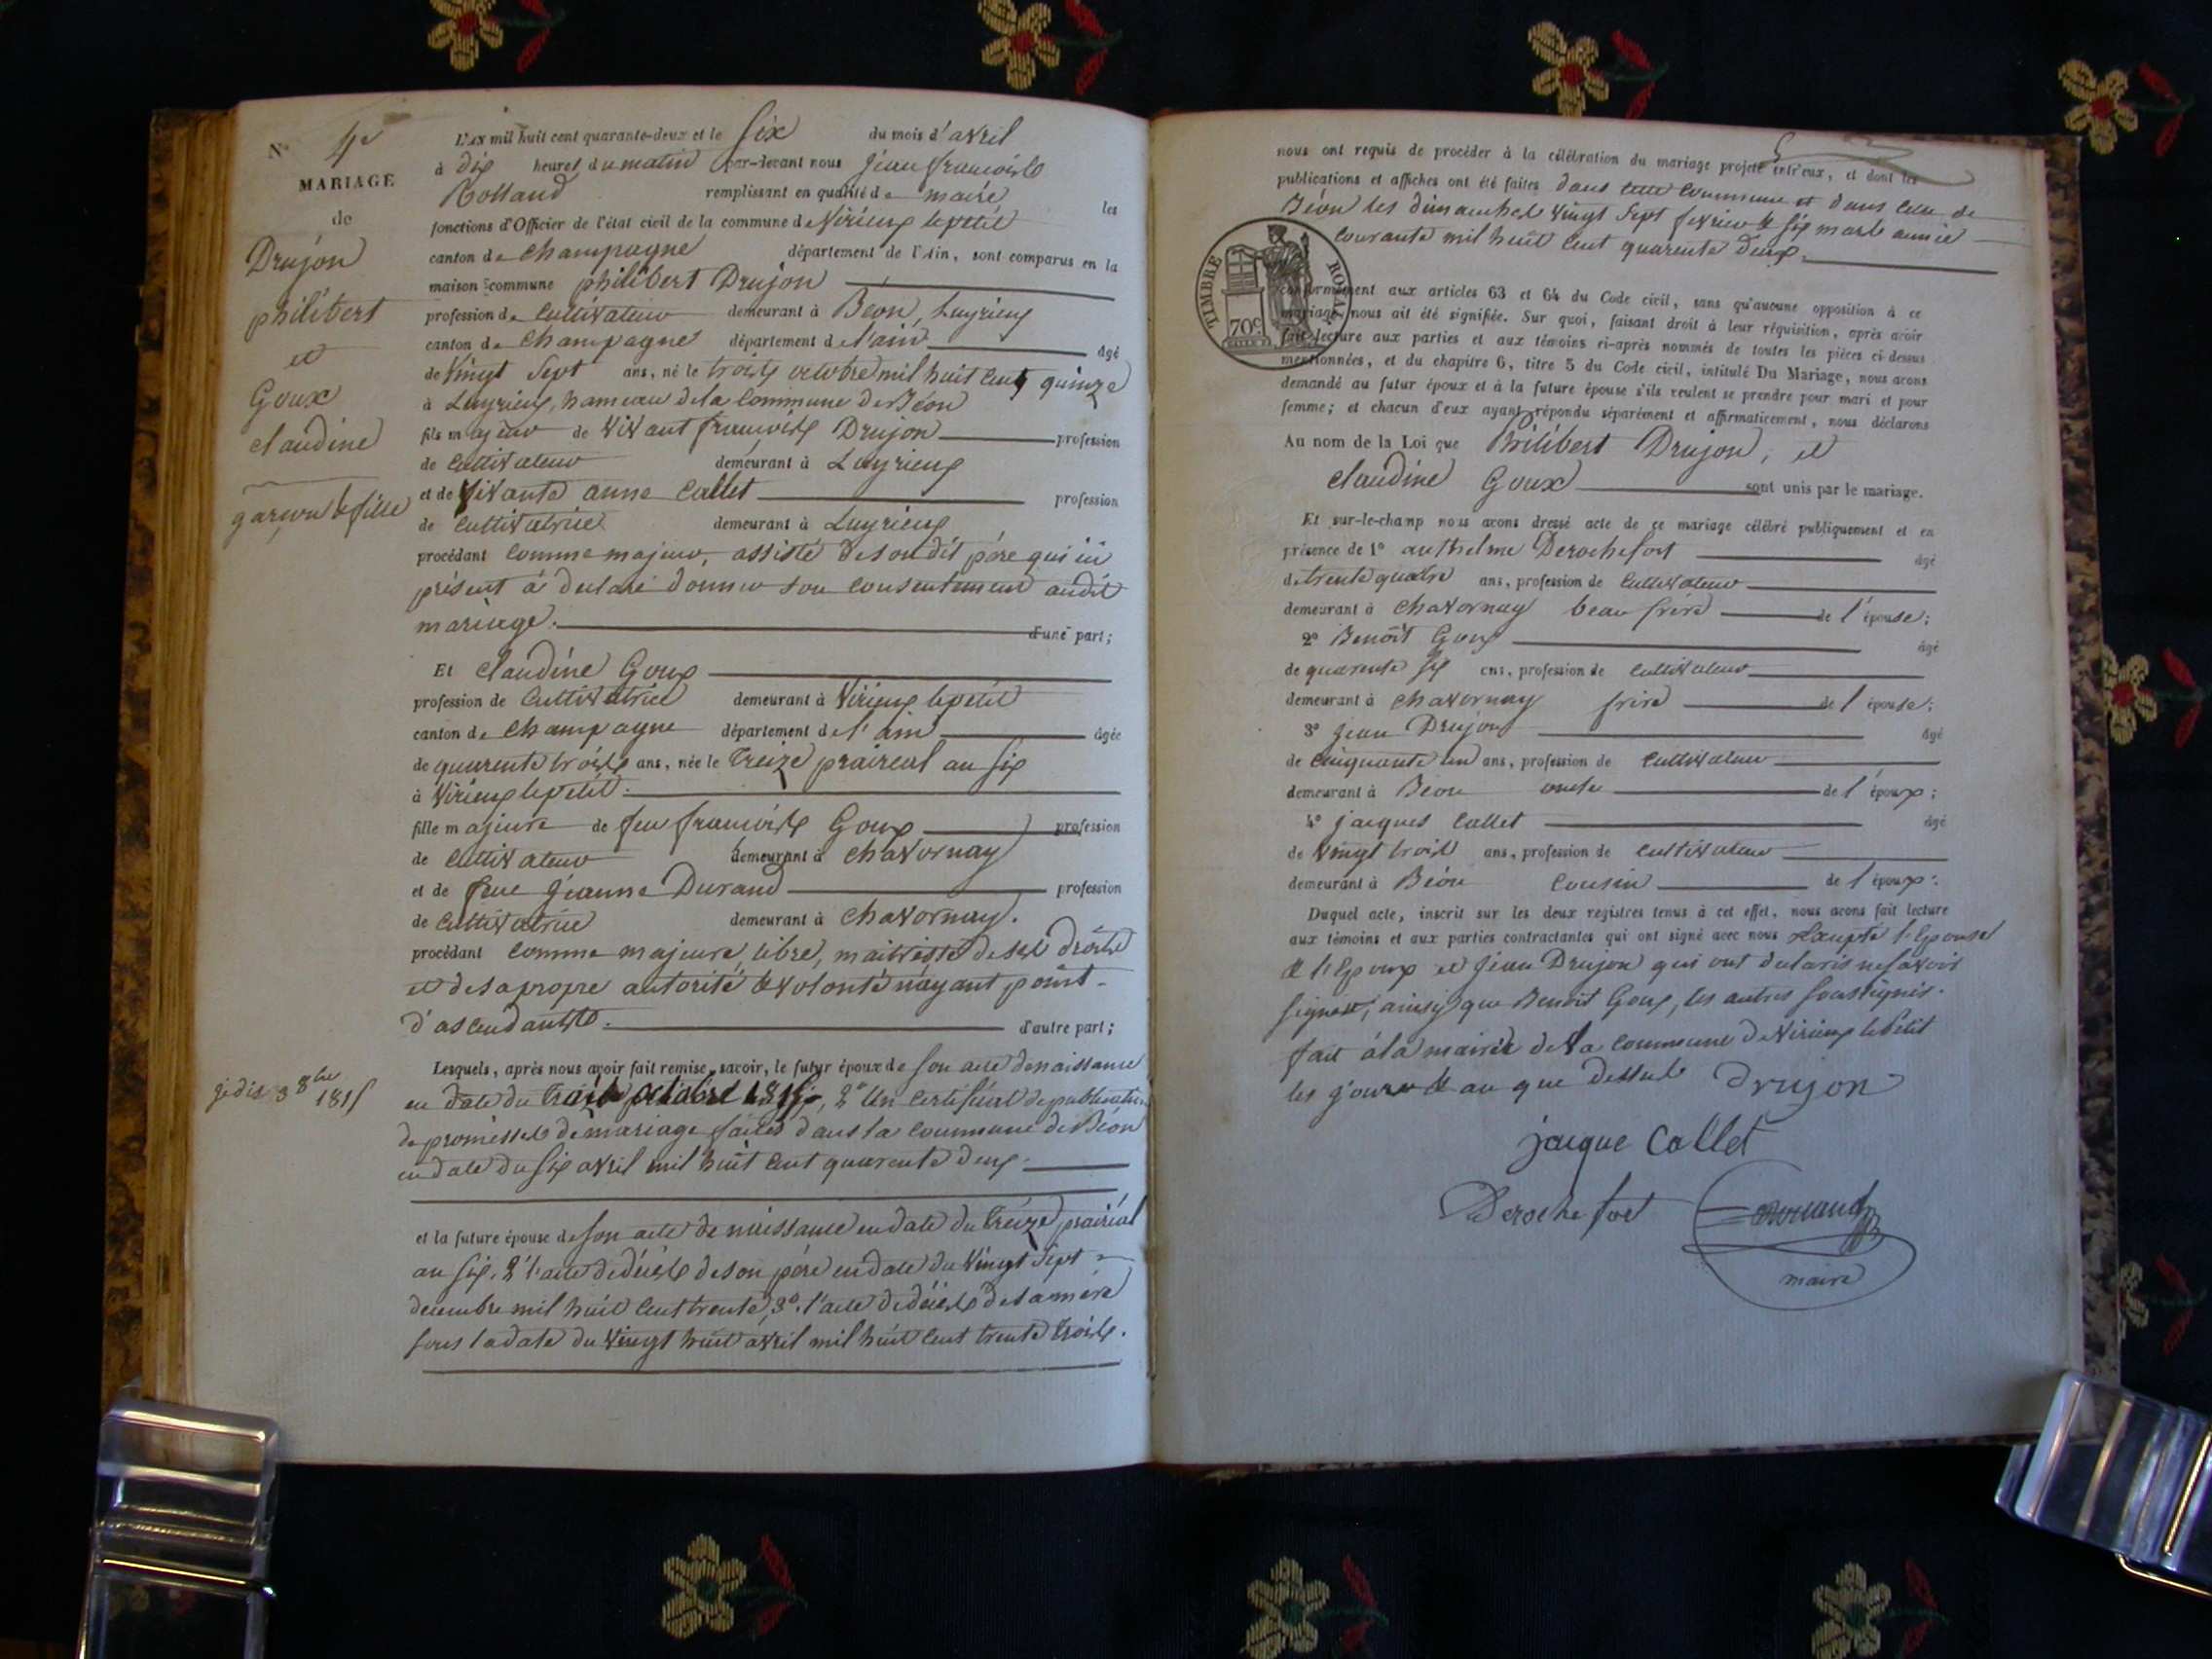 N° 4e
MARIAGE
de
Drujon
philibert
et
Goux
claudine
garçon & fille
je dis 3 8bre
1815
L'AN mil huit cent quarante-deux et le six du mois d'avril
à dix heures du matin par-devant nous jean francois
Rolland remplissant en qualité de maire les
fonctions d'Officier de l'état civil de la commune de Virieux lepetit
canton de champagne département de l'Ain, sont comparus en la
maison commune philibert Drujon
profession de cultivateur demeurant à Béon, Luyrieux
canton de champagne département de l'ain âgé
de vingt sept ans, né le trois octobre mil huit cent quinze
à Luyrieux, hameau de la commune de Béon
fils majeur de vivant francois Drujon profession
de cultivateur demeurant à Luyrieux
et de vivante anne Collet profession
de cultivatrice demeurant à Luyrieux
procédant comme majeur, assisté de son dit père qui ici
présent à declaré donner son consentement audit
mariage. d'une part;
Et claudine Goux
profession de cultivatrice demeurant à Virieux lepetit
canton de champagne département de l'ain âgée
de quarente trois ans, née le treize praireal an six
à Virieux lepetit.
fille majeure de feu francois Goux profession
de cultivateur demeurant à chavornay
et de feue jeanne Durand profession
de cultivatrice demeurant à chavornay.
procédant comme majeure, libre, maitresse de ses droits
et de sa propre autorité & volonté n'ayant point
d'ascendants. d'autre part;
Lesquels, après nous avoir fait remise, savoir, le futur époux de son acte de naissance
en date du trois octobre 1815, 2° un certificat de publication
de promesses de mariage faites dans la commune de Béon
en date du six avril mil huit cent quarente deux.
et la future épouse de son acte de naissance en date du treize praireal
an six, 2° l'acte de décès de son père en date du vingt sept
décembre mil huit cent trente, 3°. l'acte de décès de sa mère
sous la date du vingt huit avril mil huit cent trente trois.
5
nous ont requis de procéder à la célébration du mariage projeté entr'eux, et dont les
publications et affiches ont été faites dans cette commune et dans celle de
Béon les dimanches vingt sept fevrier & six mars année
courante mil huit cent quarente deux.
TIMBRE ROYAL
70c
conformément aux articles 63 et 64 du Code civil, sans qu'aucune opposition à ce
mariage nous ait été signifiée. Sur quoi, faisant droit à leur réquisition, après avoir
fait lecture aux parties et aux témoins ci-après nommés de toutes les pièces ci-dessus
mentionnées, et du chapitre 6, titre 5 du Code civil, intitulé Du Mariage, nous avons
demandé au futur époux et à la future épouse s'ils veulent se prendre pour mari et pour
femme; et chacun d'eux ayant répondu séparément et affirmativement, nous déclarons
Au nom de la Loi que Philibert Drujon, et
claudine Goux sont unis par le mariage.
Et sur-le-champ nous avons dressé acte de ce mariage célébré publiquement et en
présence de 1° anthelme Derochefort âgé
de trente quatre ans, profession de cultivateur
demeurant à chavornay beau frère de l'épouse;
2° Benoît Goux âgé
de quarente six ans, profession de cultivateur
demeurant à chavornay frère de l'épouse;
3° jean Drujon âgé
de cinquante un ans, profession de cultivateur
demeurant à Béon oncle de l'époux;
4° jacques Collet âgé
de vingt trois ans, profession de cultivateur
demeurant à Béon cousin de l'époux.
Duquel acte, inscrit sur les deux registres tenus à cet effet, nous avons fait lecture
aux témoins et aux parties contractantes qui ont signé avec nous Excepté l'Epouse
& l'Epoux et jean Drujon qui ont declaris ne savoir
signer, ainsy que Benoit Goux, les autres soussignés.
fait à la mairie de la commune de Virieux lepetit
les jour & an que dessus Drujon
jacque Collet
Derochefort Rolland
maire